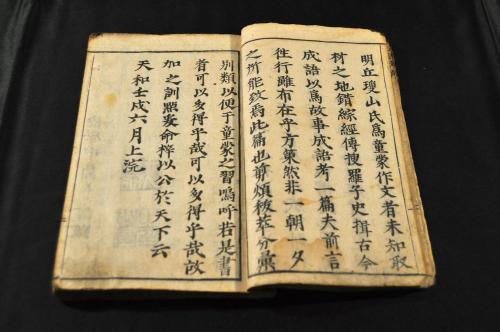 明丘瓊山氏爲童蒙作文者未知取
材之地錯綜經傳搜羅子史揖古今
成語以爲故事成語考一篇夫前言
往行雖布在乎方策然非一朝一夕
之所能致焉此篇也剪煩拔萃分彙
別類以便于童蒙之習嗚呼若是書
者可以多得乎哉可以多得乎哉故
加之訓點爰命梓以公於天下云
天和壬戌六月上浣